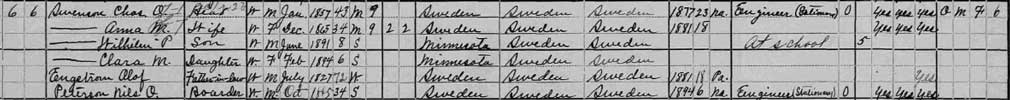 6 6 Swenson Chas O. Head W M Jan 1857 43 M 9 Sweden Sweden Sweden 1877 23 na Engineer (Stationary) 0 yes yes yes O M F 6
—— Anna M. Wife W F Dec 1865 34 M 9 2 2 Sweden Sweden Sweden 1881 18 yes yes yes
—— Wilhelm P. Son W M June 1891 8 S Minnesota Sweden Sweden At school 5
—— Clara M. Daughter W F Feb 1894 6 S Minnesota Sweden Sweden
Engstrom Olof Father-in-law W M July 1827 72 W Sweden Sweden Sweden 1881 18 Pa yes
Peterson Nils O. Boarder W M Oct 1865 34 S Sweden Sweden Sweden 1894 6 na Engineer (Stationary) 0 yes yes yes